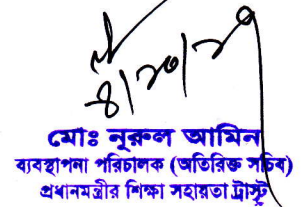 মোঃ নূরুল আমিন
ব্যবস্থাপনা পরিচালক (অতিরিক্ত সচিব)
প্রধানমন্ত্রীর শিক্ষা সহায়তা ট্রাস্ট